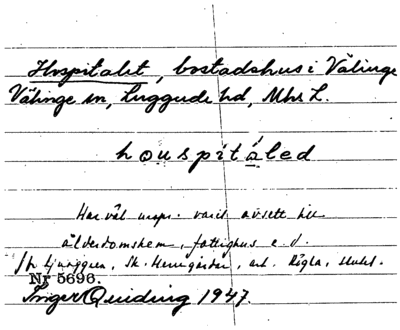 Hospitalet, bostadshus i Välinge
Välinge sn, Luggude hd, Mhs L.
houspitáled
Har väl urspr. varit avsett till
ålderdomshem, fattighus e. d.
Ljunggren, Sk. Herregårdar, art. Rögla,
Nr 5696.
Inger Quiding 1947.